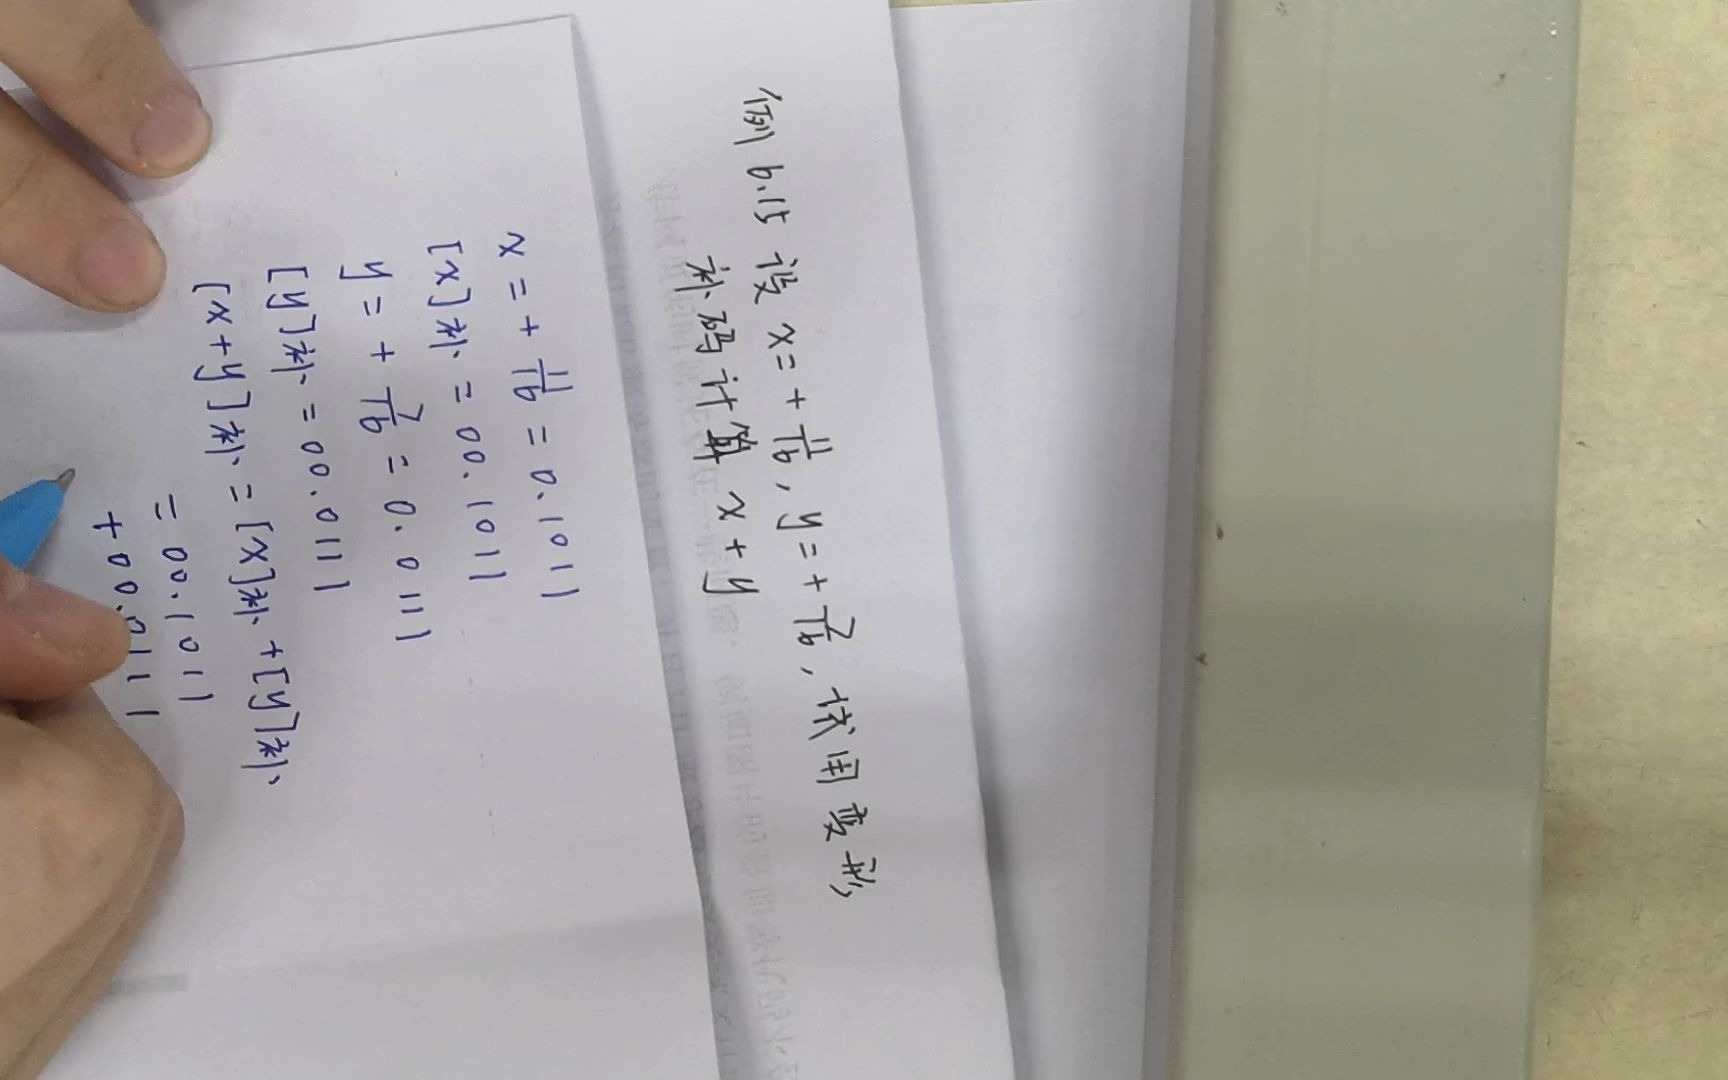 例 6.15 设 x = + 11/16, y = + 7/16, 试用变形
补码计算 x + y
x = + 11/16 = 0.1011
[x]补 = 00.1011
y = + 7/16 = 0.0111
[y]补 = 00.0111
[x+y]补 = [x]补 + [y]补
= 00.1011
+ 00.0111